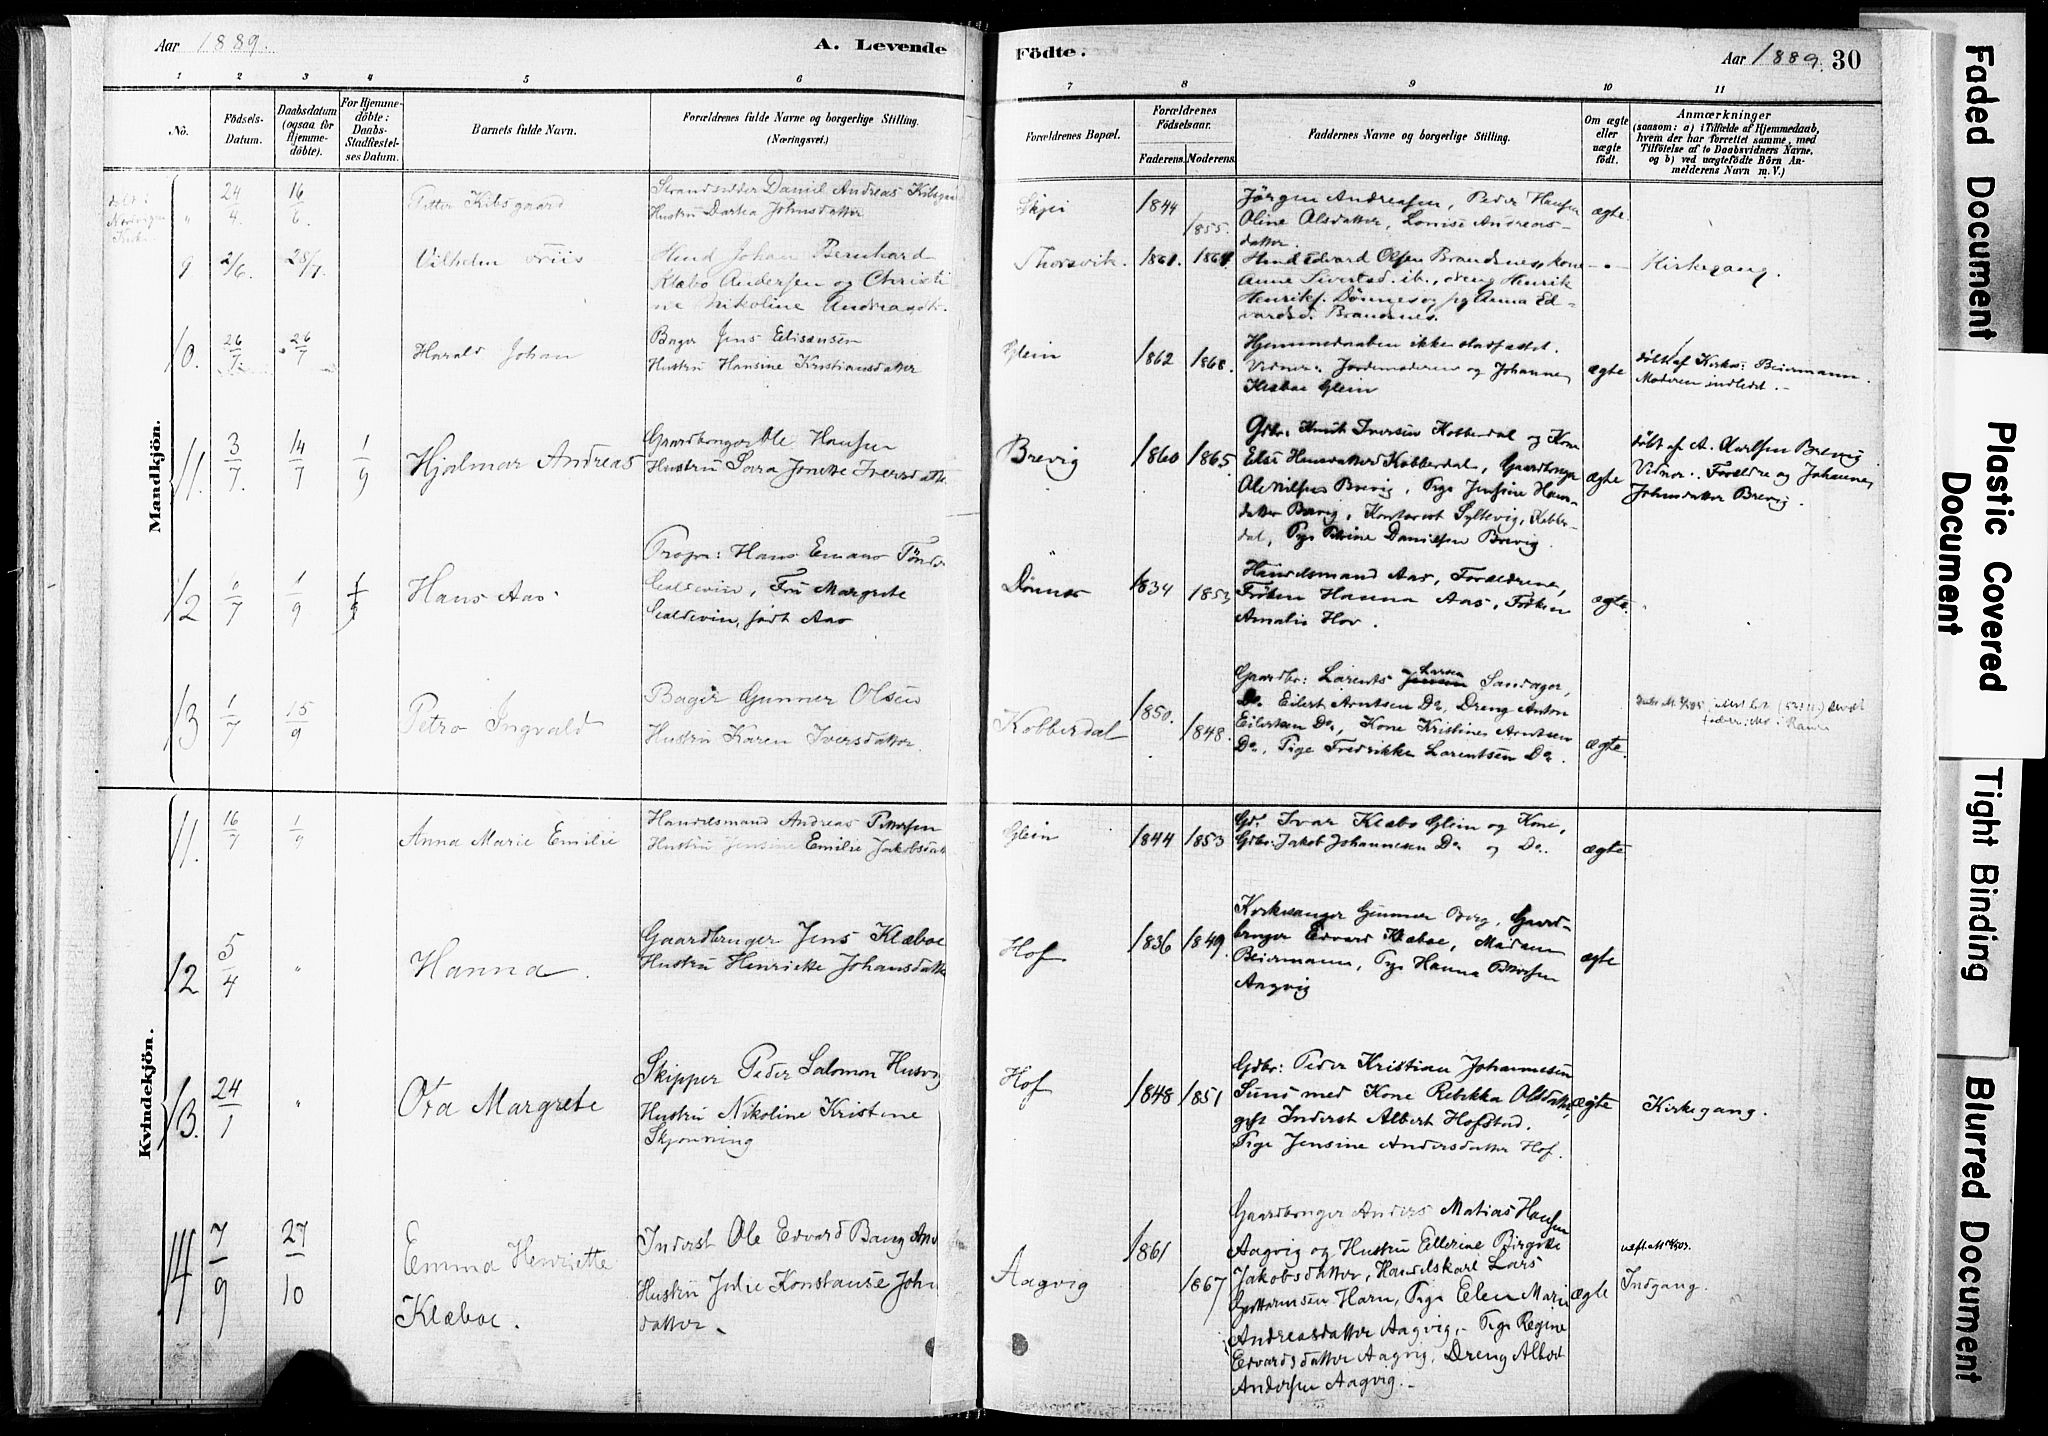 Aar 1889.
A. Levende
Födte.
Aar 1889. 30
1 2 3 4 5 6 7 8 9 10 11
No.
Födsels-
Datum.
Daabsdatum
(ogsaa for
Hjemme-
döbte).
For Hjemme-
döbte:
Daabs-
Stadfæstel-
ses Datum.
Barnets fulde Navn.
Forældrenes fulde Navne og borgerlige Stilling.
(Næringsvei.)
Forældrenes Bopæl.
Forældrenes
Födselsaar.
Faderens.
Moderens.
Faddernes Navne og borgerlige Stilling.
Om ægte
eller
uægte
födt.
Anmærkninger
(saasom: a) i Tilfælde af Hjemmedaab,
hvem der har forrettet samme, med
Tilföielse af to Daabsvidners Navne,
og b) ved uægtefödte Börn An-
melderens Navn m. V.)
Mandkjön.
" 24/4. 16/6.
Petter Kibsgaard
Strandsidder Daniel Andreas Kibsgaa
Hustru Dartea Johnsdatter
Skjei
1844
1855.
Jörgen Andreasen, Peder Hansen
Oline Olsdatter, Lovise Andreas-
datter.
ægte.
9 2/6. 28/7.
Vilhelm
Johan Bernhard
Klæbo Andersen og Christi-
ne Nikoline
Thorsvik.
1861. 1861.
Edvard Olsen Brandsnes, kone
Anne Sivertsd. ib., dreng Henrik
Henriks. Dönnes og pg Anna Ed-
vardsd. Brandsnes.
Kirkegang.
10. 26/7 26/7
Harald Johan
Bager Jens Elisensen
Hustru Hansine Kristiansdatter
Glein
1862 1868.
Hjemmedaaben ikke stadfæstet.
Vidner: Jordemoderen og Johannes
Klæboe Glein
ægte
döbt af Kirkes. Beiermann.
Moderen indledet.
11. 3/7. 14/7 1/9
Hjalmar Andreas
Gaardbruger Ole Hansen
Hustru Sara Jonette Iversdatter
Brevig
1860 1865.
Gdbr. Knut Iversen Kobberdal og Kone
Else Hansdatter Kobberdal, Gaardbruger
Ole Nilsen Brevig, Pige Jensine Hans-
datter Brevig, Syltevig, Kobber-
dal, Pige Petrine Danielsen Brevig.
ægte
döbt af A. Karlsen Brevig
Vidner: Forældre og Johannes
Johnsdatter Brevig.
12 1/7 1/9 1/9
Hans Aas
Propr: Hans Emans Tönd
Coldevin, Fru Margrete
Coldevin, födt Aas
Dönnes
1834 1853
Handelsmand Aas, Forældrene,
Fröken Hanna Aas, Fröken
Amalie Hov.
ægte.
13 1/7 15/9
Petro Ingvald
Bager Gunner Olsen
Hustru Karen Iversdatter
Kobberdal
1850. 1848.
Gaardbr: Lorents Larsen Sandager,
Do. Eilert Arntsen Do, Dreng Anton
Eilertsen Do, Kone Kristine Arntsen
Do., Pige Fredrikke Lorentsen Do.
ægte.
Kvindekjön.
11. 16/7 1/9
Anna Marie Emilie
Handelsmand Andreas Pettersen
Hustru Jensine Emilie Jakobsdatt
Glein
1844 1853
Gd. Ivar Klæbo Glein og Kone,
Gdbr: Jakob Johannesen Do og Do.
ægte
12 5/4 "
Hanna.
Gaardbruger Jens Klæboe
Hustru Henriette Johansdatter
Hof
1836 1849.
Kirkesanger Gunner Berg, Gaard-
bruger Edvard Klæboe, Madam
Beiermann, Pige Hanna
Aagvig
ægte
13. 24/1 "
Ova Margrete
Skipper Peder Salomon Husvig
Hustru Nikoline Kristine
Skjønning
Hof
1848 1851
Gdbr: Peder Kristian Johannesen
Suns med Kone Rebekka Olsdatter,
gift Inderst Albert Hofstad.
Pige Jensine Andersdatter Hof.
ægte
Kirkegang.
14 7/9 27/10
Emma Henriette
Klæboe.
Inderst Ole Edvard Bang And
Hustru Julie Konstanse John
datter.
Aagvig
1861
1867
Gaardbruger Anders Matias Hansen
Aagvig og Hustru Ellerine Birgitte
Jakobsdatter, Handelskarl Lars
Harn, Pige Elen Marie
Andreasdatter Aagvig, - Pige Regine
Edvardsdatter Aagvig, Dreng Albert
Andersen Aagvig. -
ægte
Indgang.
Faded Document
Plastic Covered
Document
Tight Binding
Blurred Document